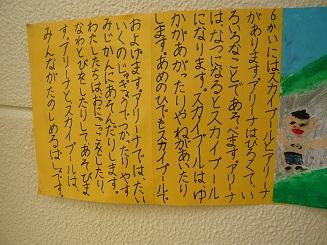 6かいにはスカイプールとアリーナ
があります。アリーナはひろくて、い
ろいろなことであそべます。アリーナ
は、なつになるとスカイプール
になります。スカイプールはゆ
かがあがったりやねがあいたり
します。あめのひでもスカイプールで
およげます。アリーナでは、たい
いくのじゅぎょうでつかったり、やす
みじかんにあそんだりします。
わたしたちは、おにごっこをしたり、
なわとびをしたりしてあそびま
す。アリーナとスカイプールは、
みんながたのしめるばしょです。